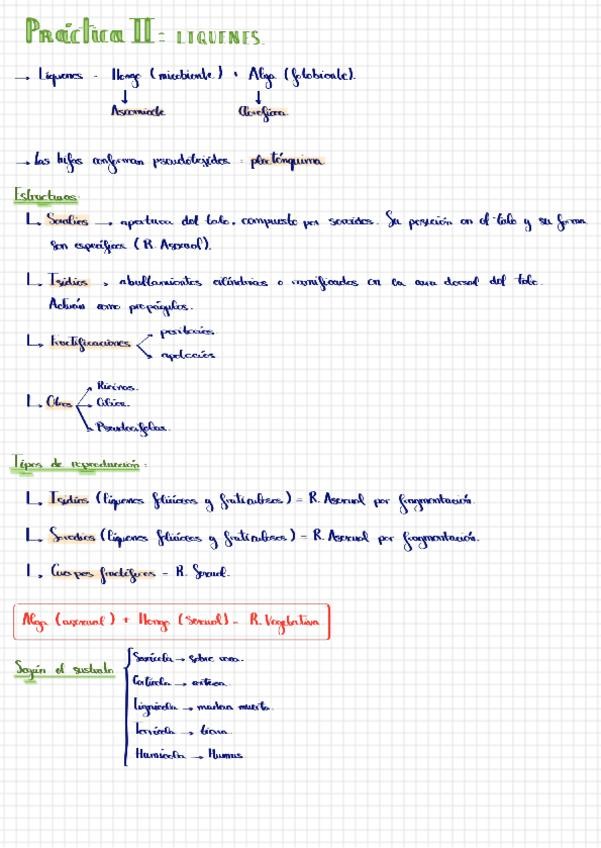 Práctica II: LIQUENES.
→ Líquenes - Hongo (micobionte) + Alga (fotobionte).
↓ ↓
Ascomicete Clorofícea
→ Las hifas conforman pseudotejidos: plecténquima
Estructuras:
↳ Soralios → apertura del talo, compuesto por soredios. Su posición en el talo y su forma
son específicas (R. Asexual).
↳ Isidios → abultamientos cilíndricos o ramificados en la cara dorsal del talo.
Actúan como propágulos.
↳ Fructificaciones
peritecios
apotecios
↳ Otros
Ricinas.
Cilios.
Pseudocifelas.
Tipos de reproducción:
↳ Isidios (líquenes foliáceos y fruticulosos) - R. Asexual por fragmentación.
↳ Soredios (líquenes foliáceos y fruticulosos) - R. Asexual por fragmentación.
↳ Cuerpos fructíferos - R. Sexual.
Alga (asexual) + Hongo (sexual) - R. Vegetativa
Según el sustrato
Saxícola → sobre roca.
Cortícola → corteza.
Lignícola → madera muerta.
Terrícola → tierra.
Humícola → Humus